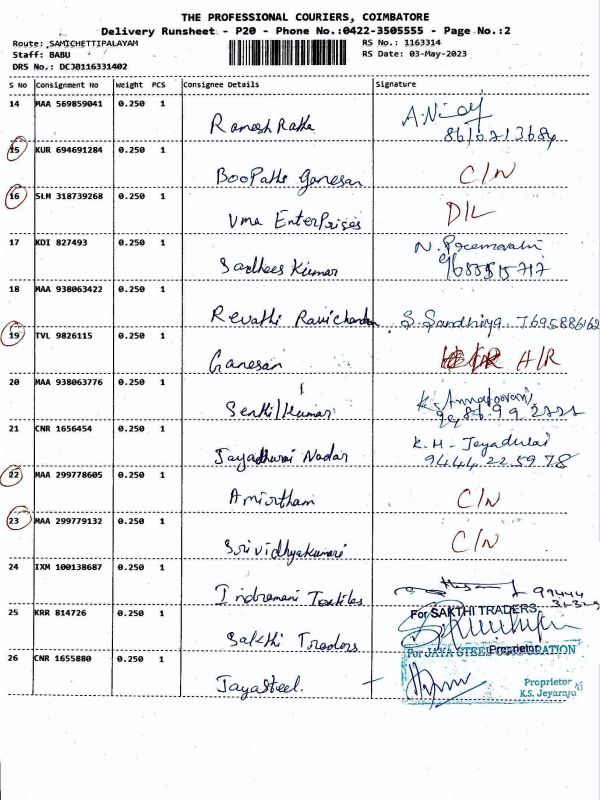 THE PROFESSIONAL COURIERS, COIMBATORE
Delivery Runsheet - P20 - Phone No.:0422-3505555 - Page No.:2
Route: ,SAMICHETTIPALAYAM RS No.: 1163314
Staff: BABU RS Date: 03-May-2023
DRS No.: DCJ0116331402
S No Consignment No Weight PCS Consignee Details Signature
14 MAA 569859041 0.250 1 Ramesh Ratha
15 KUR 694691284 0.250 1 BooPathi Ganesan C/N
16 SLM 318739268 0.250 1 Uma EnterPrises D/L
17 KDI 827493 0.250 1 Sadhees Kumar
18 MAA 938063422 0.250 1 Revathi Ravichandran S. Sandhiya 7695886162
19 TVL 9826115 0.250 1 Ganesan A/R
20 MAA 938063776 0.250 1 Senthil Kumar
21 CNR 1656454 0.250 1 Jayadhurai Nadar K. M. Jeyadurai
9444225978
22 MAA 299778605 0.250 1 Amirtham C/N
23 MAA 299779132 0.250 1 Srividhyakumari C/N
24 IXM 100138687 0.250 1 Indramani Textiles
25 KRR 814726 0.250 1 Sakthi Traders For SAKTHI TRADERS,
Proprietor
26 CNR 1655880 0.250 1 JayaSteel. For JAYA STEEL CORPORATION
Proprietor
K.S. Jeyaraju